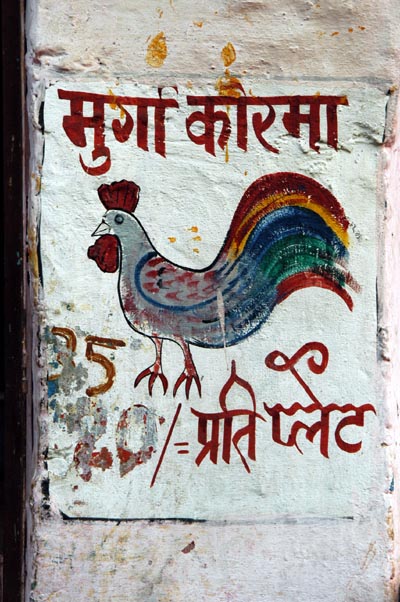 मुर्गा कोरमा
35
/= प्रति प्लेट